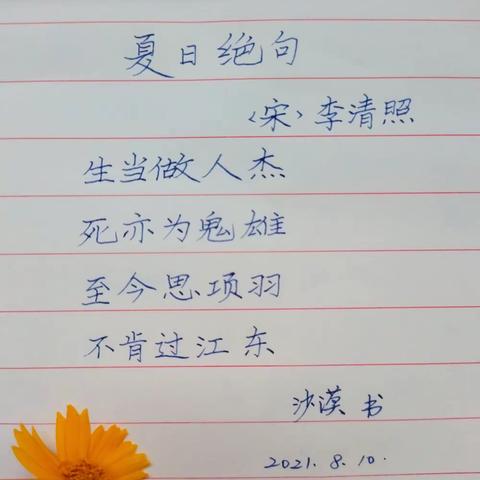 夏日绝句
〈宋〉李清照
生当做人杰
死亦为鬼雄
至今思项羽
不肯过江东
沙漠 书
2021.8.10.